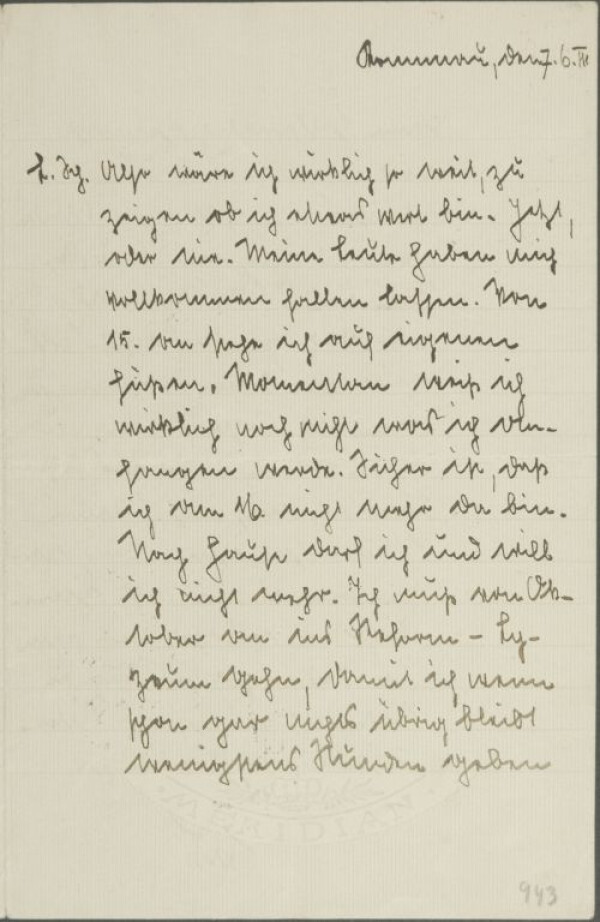 Krummau, den 7.6.III
L. Sch. Also wäre ich wirklich so weit, zu
zeigen ob ich etwas wert bin. Jetzt,
oder nie. Meine Leute haben mich
vollkommen fallen lassen. Von
15. an stehe ich auf eigenen
Füßen. Momentan weiß ich
wirklich noch nicht was ich an-
fangen werde. Sicher ist, daß
ich am 16. nicht mehr da bin.
Nach Hause darf ich und will
ich nicht mehr. Ich muß von Ok-
tober an ins Reform-Ly-
zeum gehn, damit ich, wenn
schon gar nichts übrig bleibt
wenigstens Stunden geben
MERIDIAN
943